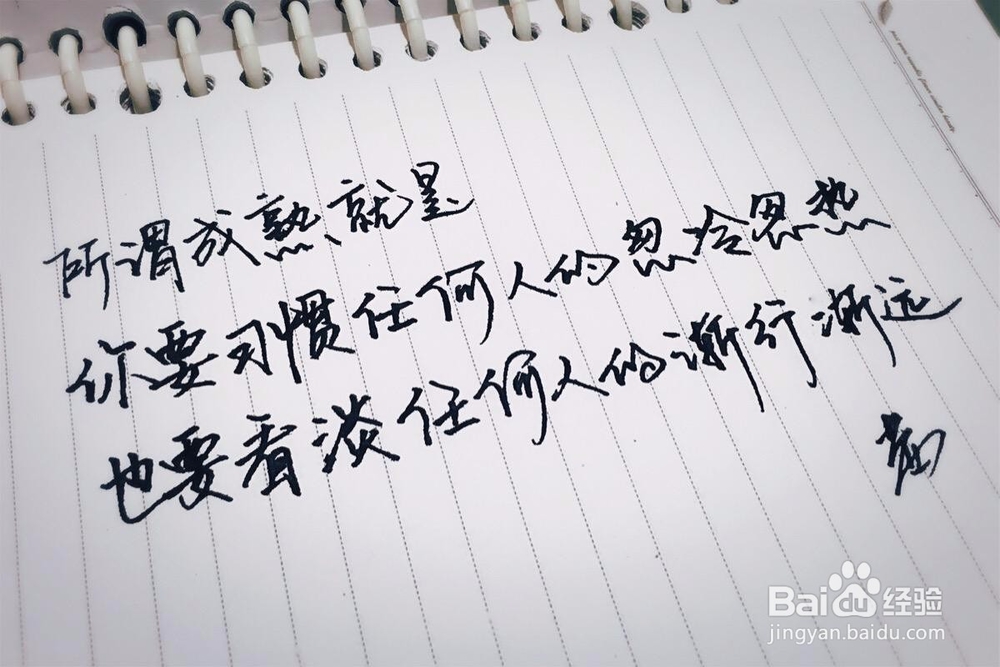 所谓成熟就是
你要习惯任何人的忽冷忽热
也要看淡任何人的渐行渐远
Baidu经验
jingyan.baidu.com